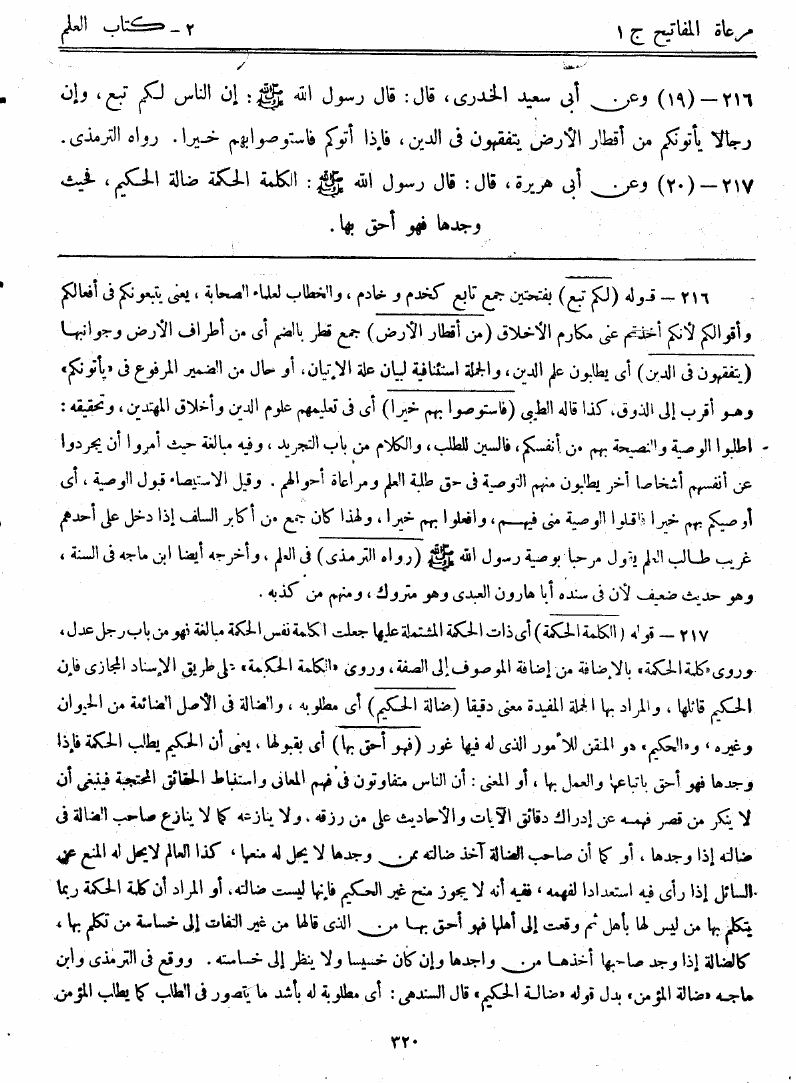 مرعاة المفاتيح ج ١
٢ – كتاب العلم
٢١٦ – (١٩) وعن أبى سعيد الخدرى، قال: قال رسول الله ﷺ: إن الناس لكم تبع، وإن
رجالا يأتونكم من أقطار الأرض يتفقهون فى الدين، فإذا أتوكم فاستوصوابهم خيرا. رواه الترمذى.
٢١٧ – (٢٠) وعن أبى هريرة، قال: قال رسول الله ﷺ: الكلمة الحكمة ضالة الحكيم، فحيث
وجدها فهو أحق بها.
٢١٦ – قوله (لكم تبع) بفتحتين جمع تابع كخدم و خادم، والخطاب لعلماء الصحابة، يعنى يتبعونكم فى أفعالكم
وأقوالكم لأنكم أخذتم عنى مكارم الأخلاق (من أقطار الأرض) جمع قطر بالضم أى من أطراف الأرض وجوانبها
(يتفقهون فى الدين) أى يطلبون علم الدين، والجملة استئنافية لبيان علة الإتيان، أو حال من الضمير المرفوع فى «يأتونكم»
وهو أقرب إلى الذوق، كذا قاله الطيبى (فاستوصوا بهم خيرا) أى فى تعليمهم علوم الدين وأخلاق المهتدين، وتحقيقه:
اطلبوا الوصية والنصيحة بهم من أنفسكم، فالسين للطلب، والكلام من باب التجريد، وفيه مبالغة حيث أمروا أن يجردوا
عن أنفسهم أشخاصا أخر يطلبون منهم التوصية فى حق طلبة العلم ومراعاة أحوالهم. وقيل الاستيصاء قبول الوصية، أى
أوصيكم بهم خيرا فاقبلوا الوصية منى فيهم، وافعلوا بهم خيرا، ولهذا كان جمع من أكابر السلف إذا دخل على أحدهم
غريب طالب العلم يقول مرحبا بوصية رسول الله ﷺ (رواه الترمذى) فى العلم، وأخرجه أيضا ابن ماجه فى السنة،
وهو حديث ضعيف لأن فى سنده أبا هارون العبدى وهو متروك، ومنهم من كذبه.
٢١٧ – قوله (الكلمة الحكمة) أى ذات الحكمة المشتملة عليها جعلت الكلمة نفس الحكمة مبالغة فهو من باب رجل عدل،
وروى «كلمة الحكمة» بالإضافة من إضافة الموصوف إلى الصفة، وروى «الكلمة الحكيمة» على طريق الإسناد المجازى فإن
الحكيم قائلها، والمراد بها الجملة المفيدة معنى دقيقا (ضالة الحكيم) أى مطلوبه، والضالة فى الأصل الضائعة من الحيوان
وغيره، و«الحكيم» هو المتقن للأمور الذى له فيها غور (فهو أحق بها) أى بقبولها، يعنى أن الحكيم يطلب الحكمة فإذا
وجدها فهو أحق باتباعها والعمل بها، أو المعنى: أن الناس متفاوتون فى فهم المعانى واستنباط الحقائق المحتجبة فينبغى أن
لا ينكر من قصر فهمه عن إدراك دقائق الآيات والأحاديث على من رزقه. ولا ينازعه كما لا ينازع صاحب الضالة فى
ضالته إذا وجدها، أو كما أن صاحب الضالة آخذ ضالته ممن وجدها لا يحل له منعها، كذا العالم لايحل له المنع عن
السائل إذا رأى فيه استعدادا لفهمه، ففيه أنه لا يجوز منح غير الحكيم فإنها ليست ضالته، أو المراد أن كلمة الحكمة ربما
يتكلم بها من ليس لها بأهل ثم وقعت إلى أهلها فهو أحق بها من الذى قالها من غير التفات إلى خساسة من تكلم بها،
كالضالة إذا وجد صاحبها أخذها من واجدها وإن كان خسيسا ولا ينظر إلى خساسته. ووقع فى الترمذى وابن
ماجه «ضالة المؤمن» بدل قوله «ضالة الحكيم» قال السندهى: أى مطلوبة له بأشد ما يتصور فى الطلب كما يطلب المؤمن
٣٢٠